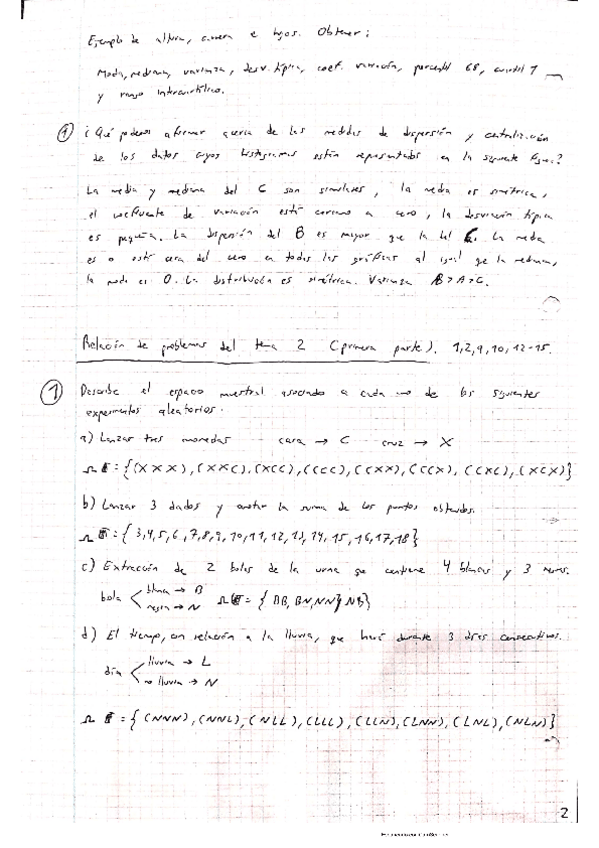 Ejemplo de altura, carrera e hijos. Obtener:
Moda, mediana, varianza, desv. típica, coef. variación, percentil 68, cuartil 1
y rango intercuartílico.
① ¿Qué podemos afirmar acerca de las medidas de dispersión y centralización
de los datos cuyos histogramas están representados en la siguiente figura?
La media y mediana del C son similares, la media es simétrica,
el coeficiente de variación está cercano a cero, la desviación típica
es pequeña. La dispersión del B es mayor que la del C. La media
es o está cerca del cero en todas las gráficas al igual que la mediana,
la moda es 0. La distribución es simétrica. Varianza B > A > C.
Relación de problemas del tema 2 (primera parte). 1, 2, 9, 10, 12-15.
① Describe el espacio muestral asociado a cada uno de los siguientes
experimentos aleatorios.
a) Lanzar tres monedas cara → C cruz → X
Ω = {(XXX), (XXC), (XCC), (CCC), (CXX), (CCX), (CXC), (XCX)}
b) Lanzar 3 dados y anotar la suma de los puntos obtenidos.
Ω = {3,4,5,6,7,8,9,10,11,12,13,14,15,16,17,18}
c) Extracción de 2 bolas de la urna que contiene 4 blancas y 3 negras.
bola blanca → B negra → N Ω = {BB, BN, NN, NB}
d) El tiempo, con relación a la lluvia, que hará durante 3 días consecutivos.
día lluvia → L
no lluvia → N
Ω = {(NNN), (NNL), (NLL), (LLL), (LLN), (LNN), (LNL), (NLN)}
2